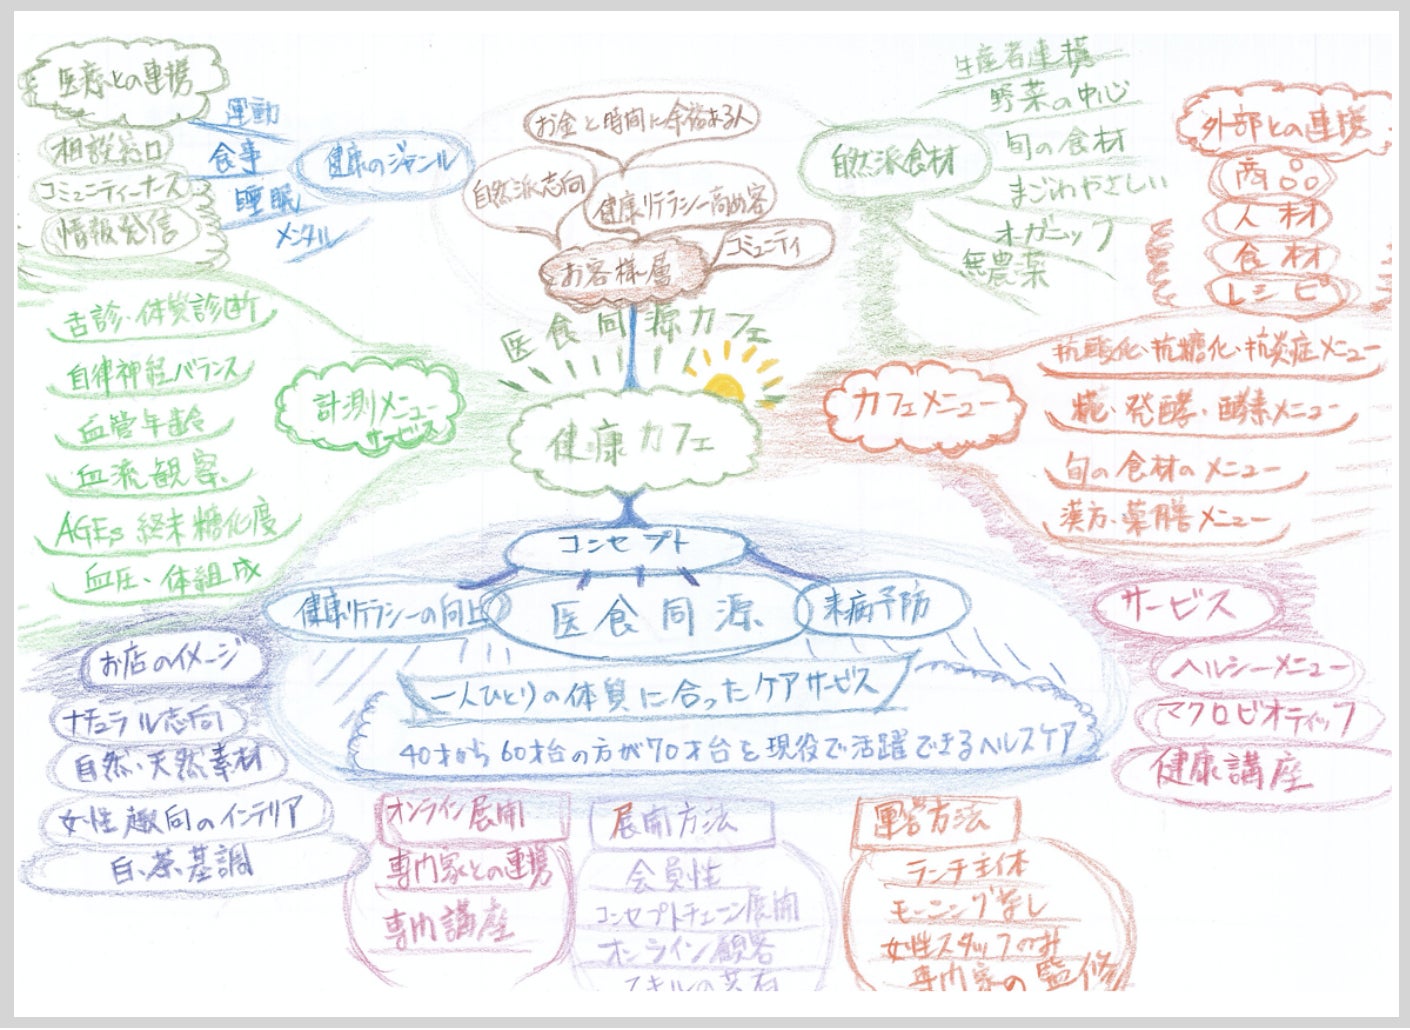 医療との連携
相談窓口
コミュニティーナース
情報発信
運動
食事
睡眠
メンタル
健康のジャンル
お金と時間に余裕ある人
自然派志向
健康リテラシー高め客
コミュニティ
お客様層
自然派食材
生産者連携
野菜の中心
旬の食材
まごわやさしい
オーガニック
無農薬
外部との連携
商品
人材
食材
レシピ
医食同源カフェ
健康カフェ
計測メニュー
サービス
舌診・体質診断
自律神経バランス
血管年齢
血流観察
AGEs 終末糖化度
血圧、体組成
カフェメニュー
抗酸化・抗糖化・抗炎症メニュー
糀・発酵・酵素メニュー
旬の食材のメニュー
漢方・薬膳メニュー
コンセプト
健康リテラシーの向上
医食同源
未病予防
一人ひとりの体質に合ったケアサービス
40才から60才台の方が70才台を現役で活躍できるヘルスケア
サービス
ヘルシーメニュー
マクロビオティック
健康講座
お店のイメージ
ナチュラル志向
自然・天然素材
女性趣向のインテリア
白、茶、基調
オンライン展開
専門家との連携
専門講座
展開方法
会員性
コンセプトチェーン展開
オンライン顧客
スキルの共有
運営方法
ランチ主体
モーニングなし
女性スタッフのみ
専門家の監修